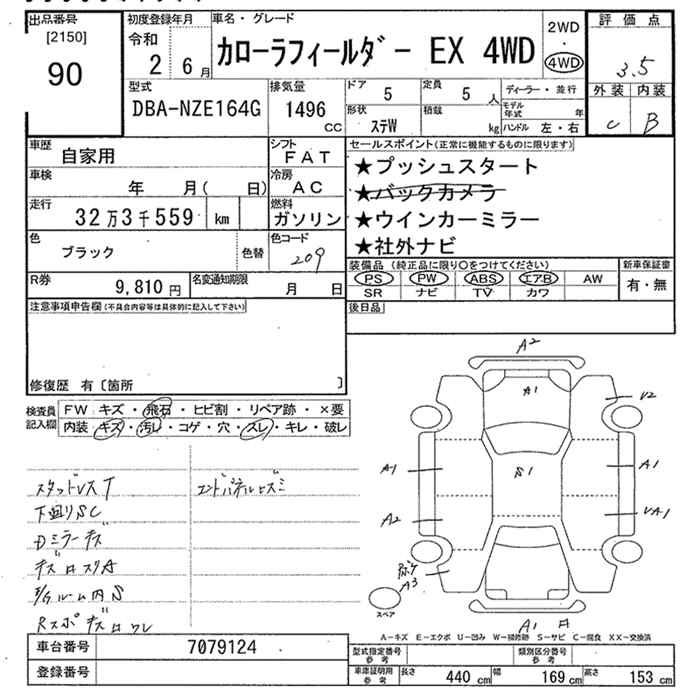 出品番号 初度登録年月 車名・グレード 評価点
[2150]
90
令和
2 6月
カローラフィールダー EX 4WD
2WD
・
4WD
3.5
外装 内装
C B
型式 排気量 ドア 定員
DBA-NZE164G 1496 CC
5 5人
ディーラー・並行
モデル年式 年
形状 積載
ステW kg
ハンドル 左・右
車歴 自家用
シフト FAT
車検 年 月( 日)
冷房 AC
走行 32万3千559 km
燃料 ガソリン
色 ブラック 色替
色コード 209
R券 9,810円
名変通知期限 月 日
注意事項申告欄(不具合内容等は具体的に記入して下さい)
修復歴 有〔箇所 〕
セールスポイント(正常に機能するものに限ります)
★プッシュスタート
★バックカメラ
★ウインカーミラー
★社外ナビ
装備品(純正品に限り○をつけてください) 新車保証書
PS PW ABS エアB AW
SR ナビ TV カワ
有・無
後日品
検査員記入欄
FW キズ・飛石・ヒビ割・リペア跡・×要
内装 キズ・汚レ・コゲ・穴・スレ・キレ・破レ
スタッドレスT
下回りSC
Dミラーキズ
エンドパネルヒズミ
A2
A1
U2
A1
S1
A1
A2
A3
A1
スペア
A-キズ E-エクボ U-凹み W-補修跡 S-サビ C-腐食 XX-交換済
車台番号 7079124
登録番号
型式指定番号 参考
類別区分番号 参考
車庫証明用 参考
長さ 440 cm 幅 169 cm 高さ 153 cm